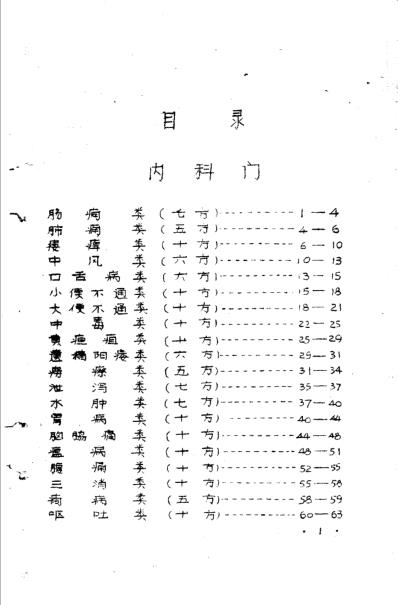 目录
内科门
肠痈类(七方)------1—4
肺痈类(五方)------4—6
痿痹类(十方)------6—10
中风类(六方)------10—13
口舌病类(六方)------13—15
小便不通类(十方)------15—18
大便不通类(十方)------18—21
中毒类(十方)------22—25
黄疸疸类(十方)------25—29
遗精阳痿类(六方)------29—31
痨瘵类(五方)------31—34
泄泻类(七方)------35—37
水肿类(七方)------37—40
胃病类(十方)------40—44
胸脇痛类(十方)------44—48
病类(十方)------48—51
腹痛类(十方)------52—55
三消类(十方)------55—58
病类(五方)------58—59
呕吐类(十方)------60—63
·1·